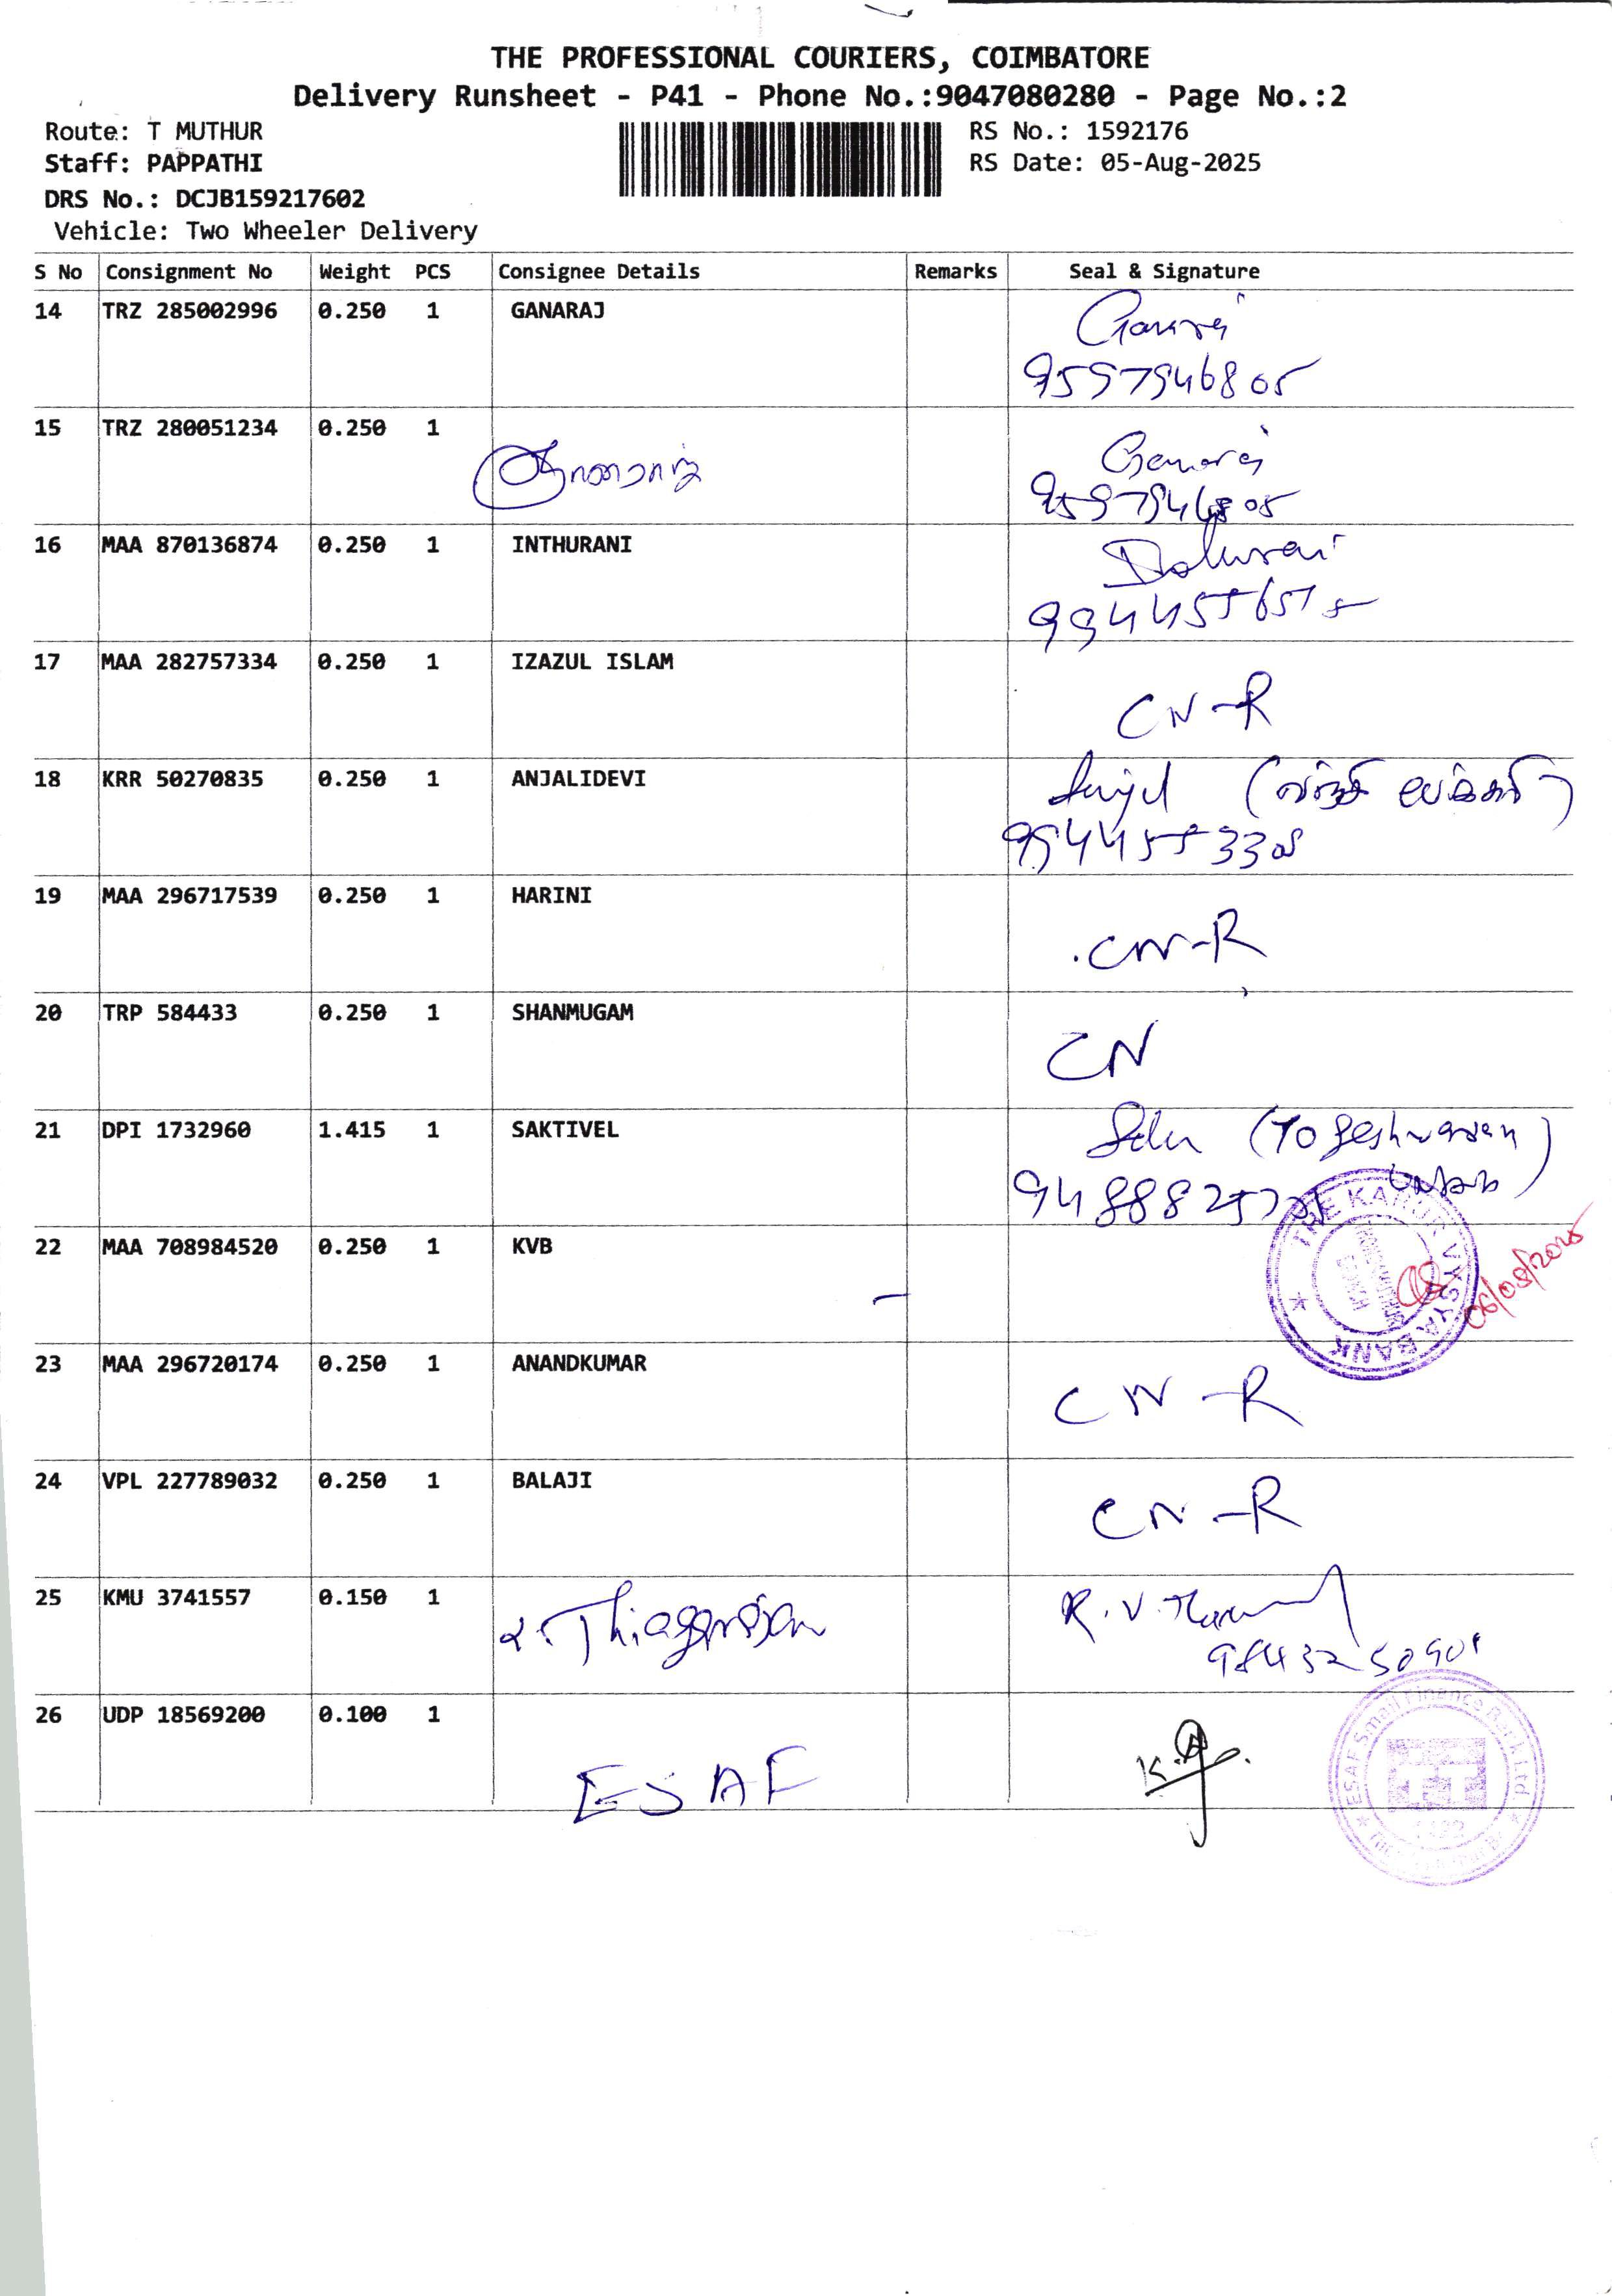 THE PROFESSIONAL COURIERS, COIMBATORE
Delivery Runsheet - P41 - Phone No.:9047080280 - Page No.:2
Route: T MUTHUR
Staff: PAPPATHI
DRS No.: DCJB159217602
Vehicle: Two Wheeler Delivery
RS No.: 1592176
RS Date: 05-Aug-2025
S No Consignment No Weight PCS Consignee Details Remarks Seal & Signature
14 TRZ 285002996 0.250 1 GANARAJ
9597946805
15 TRZ 280051234 0.250 1
9597946805
16 MAA 870136874 0.250 1 INTHURANI
17 MAA 282757334 0.250 1 IZAZUL ISLAM CN-R
18 KRR 50270835 0.250 1 ANJALIDEVI
19 MAA 296717539 0.250 1 HARINI CN-R
20 TRP 584433 0.250 1 SHANMUGAM CN
21 DPI 1732960 1.415 1 SAKTIVEL
22 MAA 708984520 0.250 1 KVB
THE KARUR VYSYA BANK
06/08/2025
23 MAA 296720174 0.250 1 ANANDKUMAR CN-R
24 VPL 227789032 0.250 1 BALAJI CN-R
25 KMU 3741557 0.150 1 Thiagarajan R.V.
26 UDP 18569200 0.100 1 ESAF
ESAF Small Finance Bank Ltd.